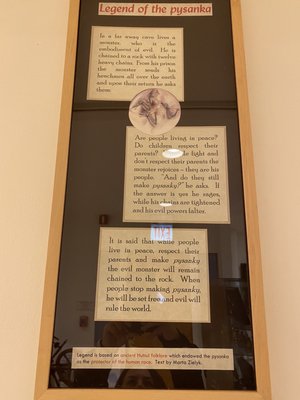 Legend of the pysanka
In a far away cave lives a
monster, who is the
embodiment of evil. He is
chained to a rock with twelve
heavy chains. From his prison
the monster sends his
henchmen all over the earth
and upon their return he asks
them.
Are people living in peace?
Do children respect their
parents? le fight and
don't respect their parents the
monster rejoices – they are his
people. "And do they still
make pysanky?" he asks. If
the answer is yes he rages,
while his chains are tightened
and his evil powers falter.
It is said that while people
live in peace, respect their
parents and make pysanky
the evil monster will remain
chained to the rock. When
people stop making pysanky,
he will be set free and evil will
rule the world.
Legend is based on ancient Hutsul folklore which endowed the pysanka
as the protector of the human race. Text by Marta Zielyk.